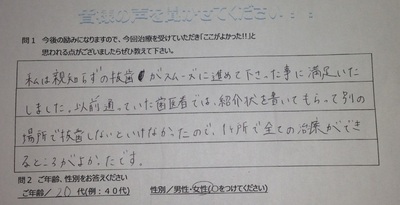 皆様の声を聞かせてください
問1 今後の励みになりますので、今回治療を受けていただき「ここがよかった!!」と
思われる点がございましたらぜひ教えて下さい。
私は親知らずの抜歯がスムーズに進めて下さった事に満足いた
しました。以前通っていた歯医者では、紹介状を書いてもらって別の
場所で抜歯しないといけなかったので、1ヶ所で全ての治療ができ
るところがよかったです。
問2 ご年齢、性別をお答えください
ご年齢/20代(例:40代) 性別/男性・女性(○をつけてください)